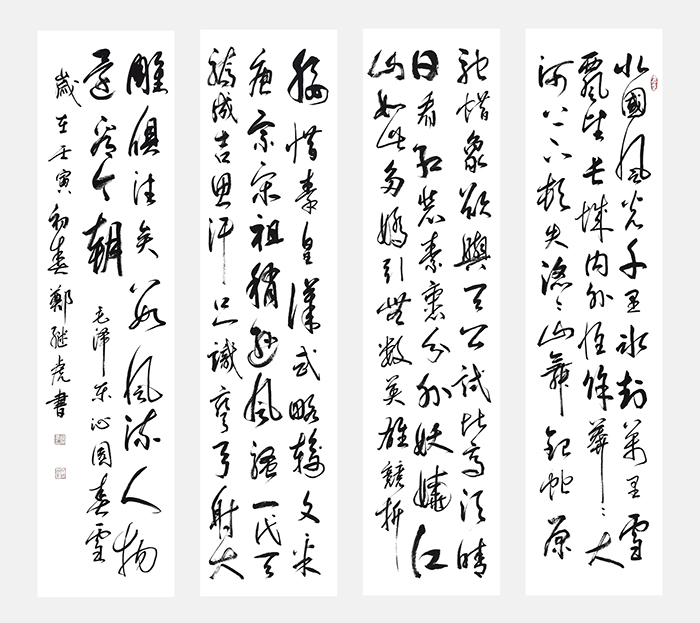 北國風光千里冰封萬里雪
飄望長城内外惟餘莽〻大
河上下頓失滔〻山舞銀蛇原
馳蜡象欲與天公試比高須晴
日看紅裝素裹分外妖嬈江
山如此多嬌引無數英雄競折
腰惜秦皇漢武略輸文采
唐宗宋祖稍遜風騷一代天
驕成吉思汗只識彎弓射大
雕俱往矣數風流人物
還看今朝
毛泽东沁園春雪
歲在壬寅初春鄭继虎書